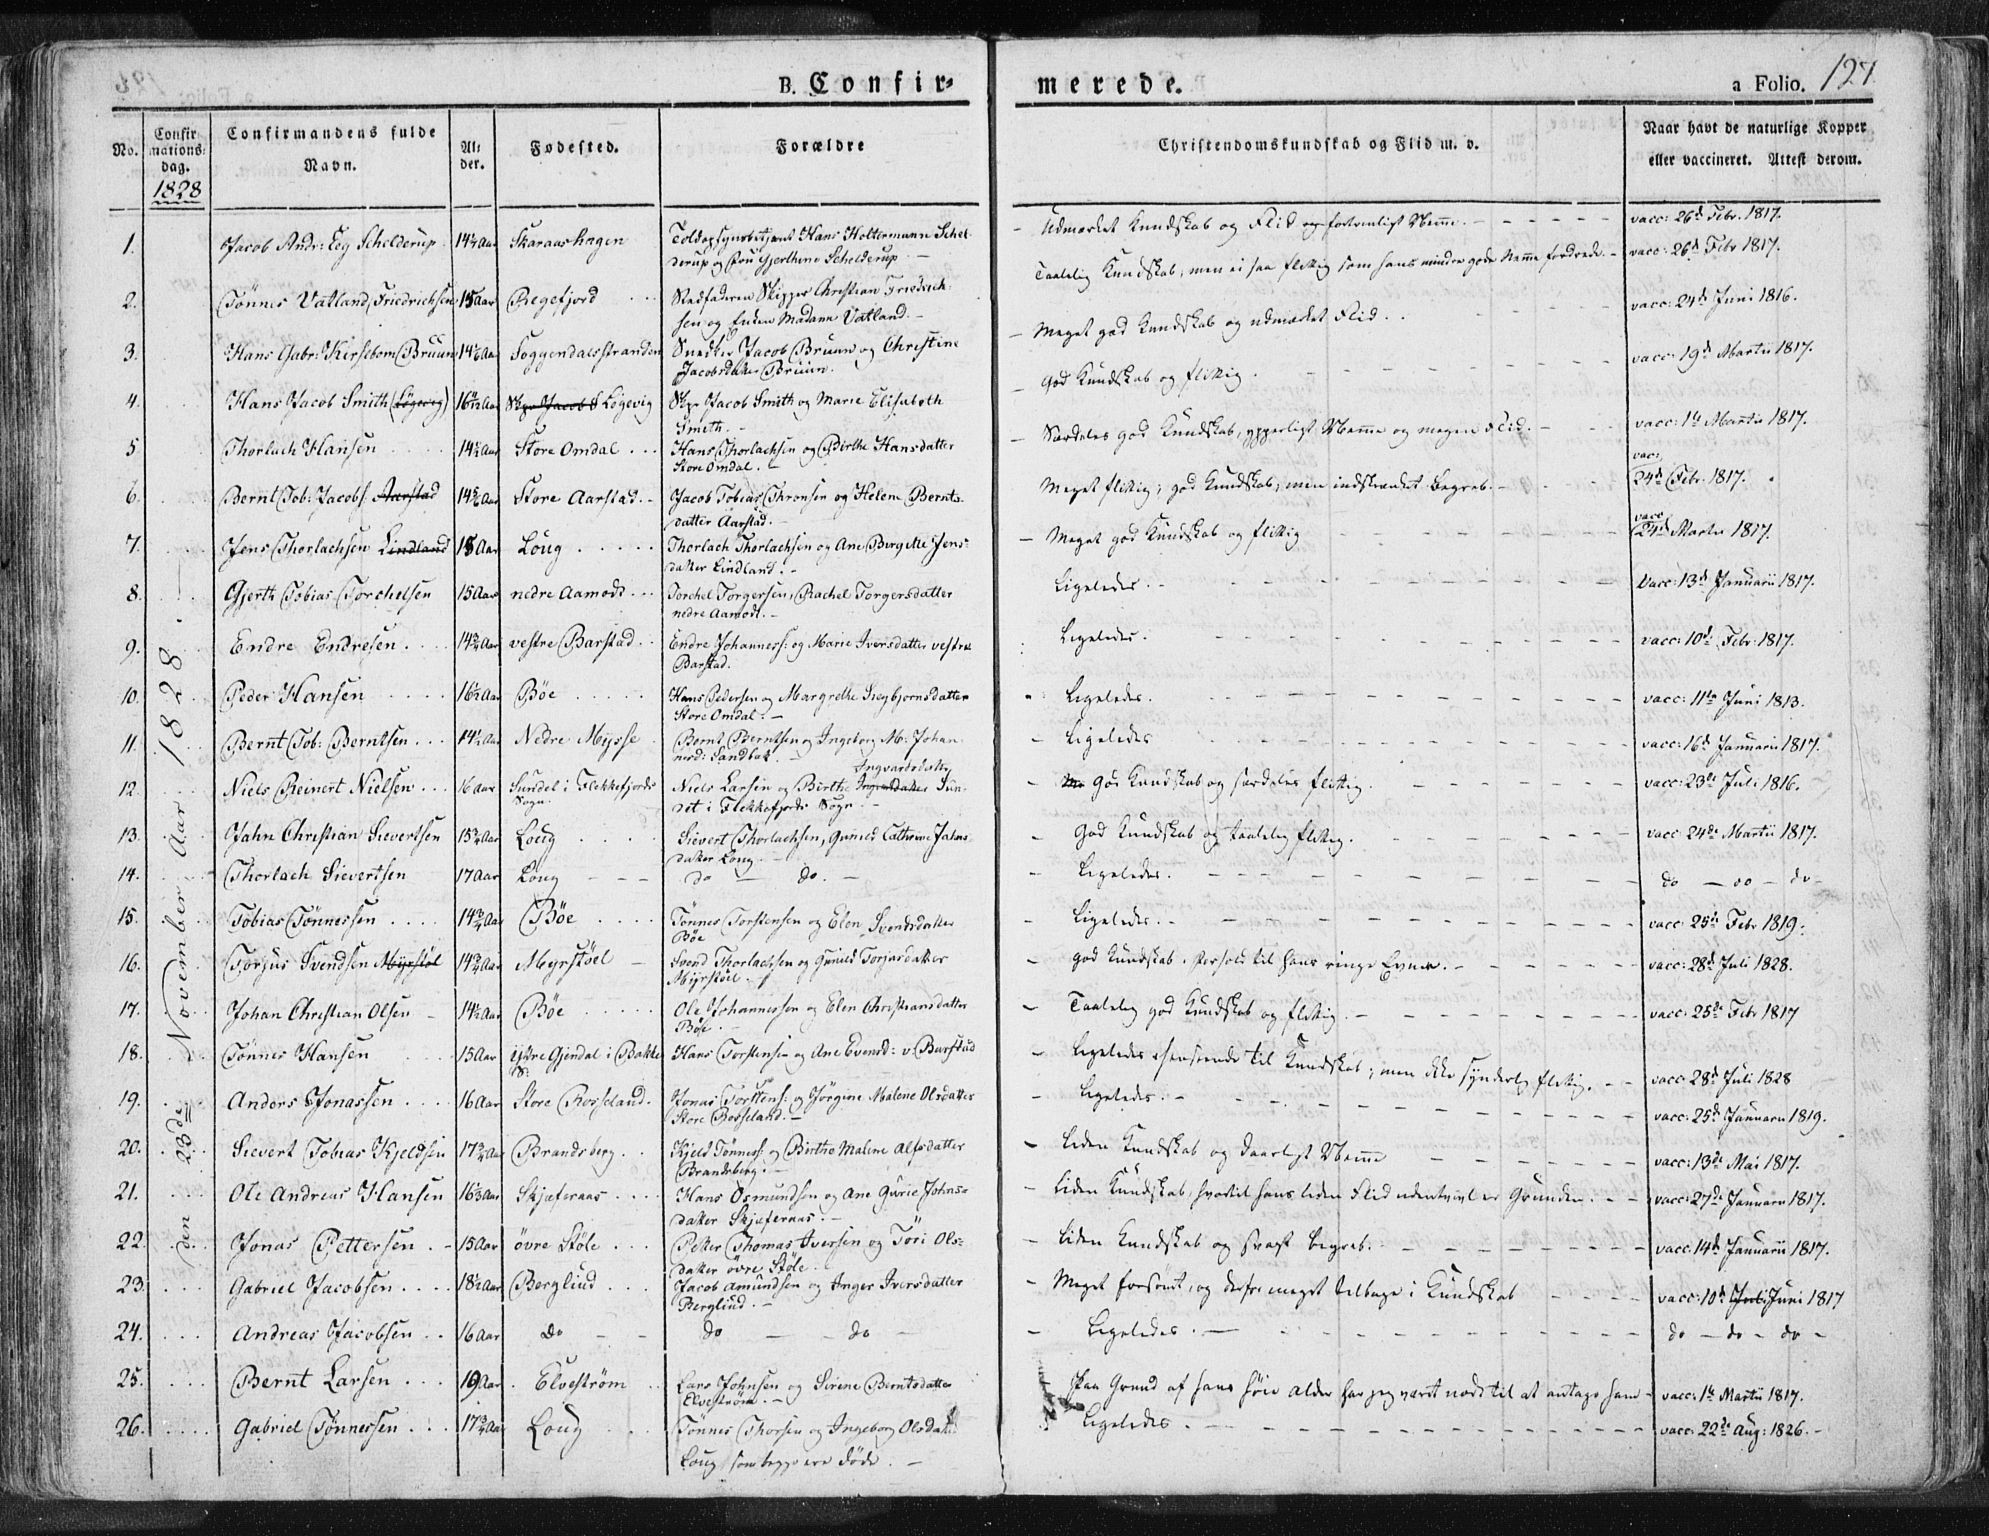 B. Confir-
merede.
a Folio. 127.
No.
Confirmations-dag.
1828
Confirmandens fulde Navn.
Alder.
Fødested.
Forældre
Christendomskundskab og Flid m. v.
Naar havt de naturlige Kopper eller vaccineret. Attest derom.
den 23de November Aar 1828.
1. Jacob Andr: Eeg Schelderup 14½ Aar Skaraashagen Toldopsynsbetjent Hans Holtermann Schel-
derup og Gjerthine Schelderup. —
Udmærket Kundskab og Flid og fortrinligt Nemme. vacc: 26d Febr. 1817.
2. Tønnes Vatland Friedrichsen 15 Aar Regefjord Stedfaderen Skipper Christian Friedrich-
sen og Enken Madame Vatland. —
Taalelig Kundskab, men ei saa flittig som hans mindre gode Nemme fordrede. vacc: 26d Febr 1817.
3. Hans Gabr: Kirsebom Bruun Soggendalsstranden Snedker Jacob Bruun og Christine
Jacobsdatter Bruun.
Meget god Kundskab og udmærket Flid. vacc: 24d Juni 1816.
4. Hans Jacob Smith (Løgevig) Løgevig Skpr Jacob Smith og Marie Elisabeth
Smith. —
God Kundskab og flittig. vacc: 19d Martii 1817.
5 Thorlach Hansen Store Omdal Hans Thorlachsen og Birthe Hansdatter
Store Omdal. —
Særdeles god Kundskab, ypperligt Nemme og megen Flid. vacc: 1te Martii 1817.
6. Bernt Tob: Jacobs: Aarstad Store Aarstad. Jacob Tobias Thronsen og Helene Bernts-
datter Aarstad. —
Meget flittig; god Kundskab; men indskrænket Begreb. vacc: 24d Febr. 1817.
7. Jens Thorlachsen Lindland Loug Thorlach Thorlachsen og Ane Birgitte Jens-
datter Lindland. —
Meget god Kundskab og flittig vacc 24d Martii 1817.
8. Gjerth Tobias Torchelsen 15 Aar nedre Aamodt Torchel Torgersen, Rachel Torgersdatter
nedre Aamodt. —
Ligeledes. vacc: 13d Januarii 1817.
9. Endre Endresen 14¾ Aar vestre Barstad Endre Johanness: og Marie Iversdatter vestre
Barstad.
Ligeledes. vacc: 10d Febr: 1817.
10. Peder Hansen 16½ Aar Bøe Hans Pedersen og Margrethe Siegbjørnsdatter
Store Omdal. —
Ligeledes. vacc: 11te Juni 1813.
11. Bernt Tob: Berntsen 14½ Aar Nedre Mysse Bernt Berntsen og Ingeborg M: Johan-
Sandbæk. —
Ligeledes vacc: 16d Januarii 1817.
12. Niels Reinert Nielsen 16 aar Sundet i Flekkefjords
Sogn. Niels Larsen og Birthe Ingvardsdatter Sun-
det i Flekkefjords Sogn. —
God Kundskab og særdeles flittig. vacc: 23de Juli 1816.
13. Jahn Christian Sievertsen 15¾ Aar Loug Sievert Thorlachsen, Gunild Cathrine Jahns-
datter Loug. —
God Kundskab og taalelig flittig. vacc 24de Martii 1817.
14. Thorlach Sievertsen 17 Aar Loug do — do. —
Ligeledes. do — do — do —
15. Tobias Tønnessen 14¾ Aar Bøe Tønnes Torstensen og Elen Svendsdatter
Bøe
Ligeledes. vacc: 25de Febr 1819.
16. Torjus Svendsen Myrstøl 14¾ Aar Myrstøel Svend Thorlachsen og Gunild Torjusdatter
Myrstøel. —
god Kundskab i Forhold til hans ringe Evner. vacc: 28d Juli 1828.
17. Johan Christian Olsen 14½ Aar Bøe Ole Johannessen og Elen Christiansdatter
Bøe. —
Taalelig god Kundskab og flittig. vacc: 25de Febr 1817
18. Tønnes Hansen 15 Aar Gjendal i Bakke
S: Hans Torstensen og Ane Evensd: v: Barstad
Ligeledes henseende til Kundskab; men ikke synderlig flittig. vacc: 28d Juli 1828
19. Anders Jonassen 16 Aar Store Rosseland. Jonas Torstens: og Jørgine Malene Olsdatter
Store Rosseland. —
Ligeledes. vacc: 25d Januarii 1819.
20. Sievert Tobias Kjeldsen 17¾ Aar Brandsberg Kjeld Tønness: og Birthe Malene Alfsdatter
Brandsberg. —
Liden Kundskab og daarligt Nemme vacc: 13de Mai 1817.
21. Ole Andreas Hansen Skjefernaas Hans Osmundsen og Ane Gurie Johns-
datter Skjefernaas. —
Liden Kundskab, hvortil hans liden Flid udentvivl er Grunden. vacc: 27de Januarii 1817.
22. Jonas Pettersen 15 Aar øvre Støle Petter Thomas Iversen og Tøri Ols-
datter øvre Støle.
Liden Kundskab og svagt Begreb. vacc: 14d Januarii 1817.
23. Gabriel Jacobsen 18½ Aar Berglund Jacob Amundsen og Inger Iversdatter
Berglund. —
Meget forsømt, og derfor meget tilbage i Kundskab vacc: 10d Juli Juni 1817
24. Andreas Jacobsen 16 Aar Do do — do —
Ligeledes. do — do — do —
25. Bernt Larsen 19 Aar Elvestrøm Lars Johnsen og Sirene Berntsdatter
Elvestrøm. —
Paa Grund af hans høie Alder har jeg været nødt til at antage ham vacc: 1te Martii 1817.
26. Gabriel Tønnessen 17¾ Aar Loug Tønnes Thorsen og Ingeborg Olsdat
Loug som begge ere døde. —
Ligeledes vacc: 22de Aug: 1826.